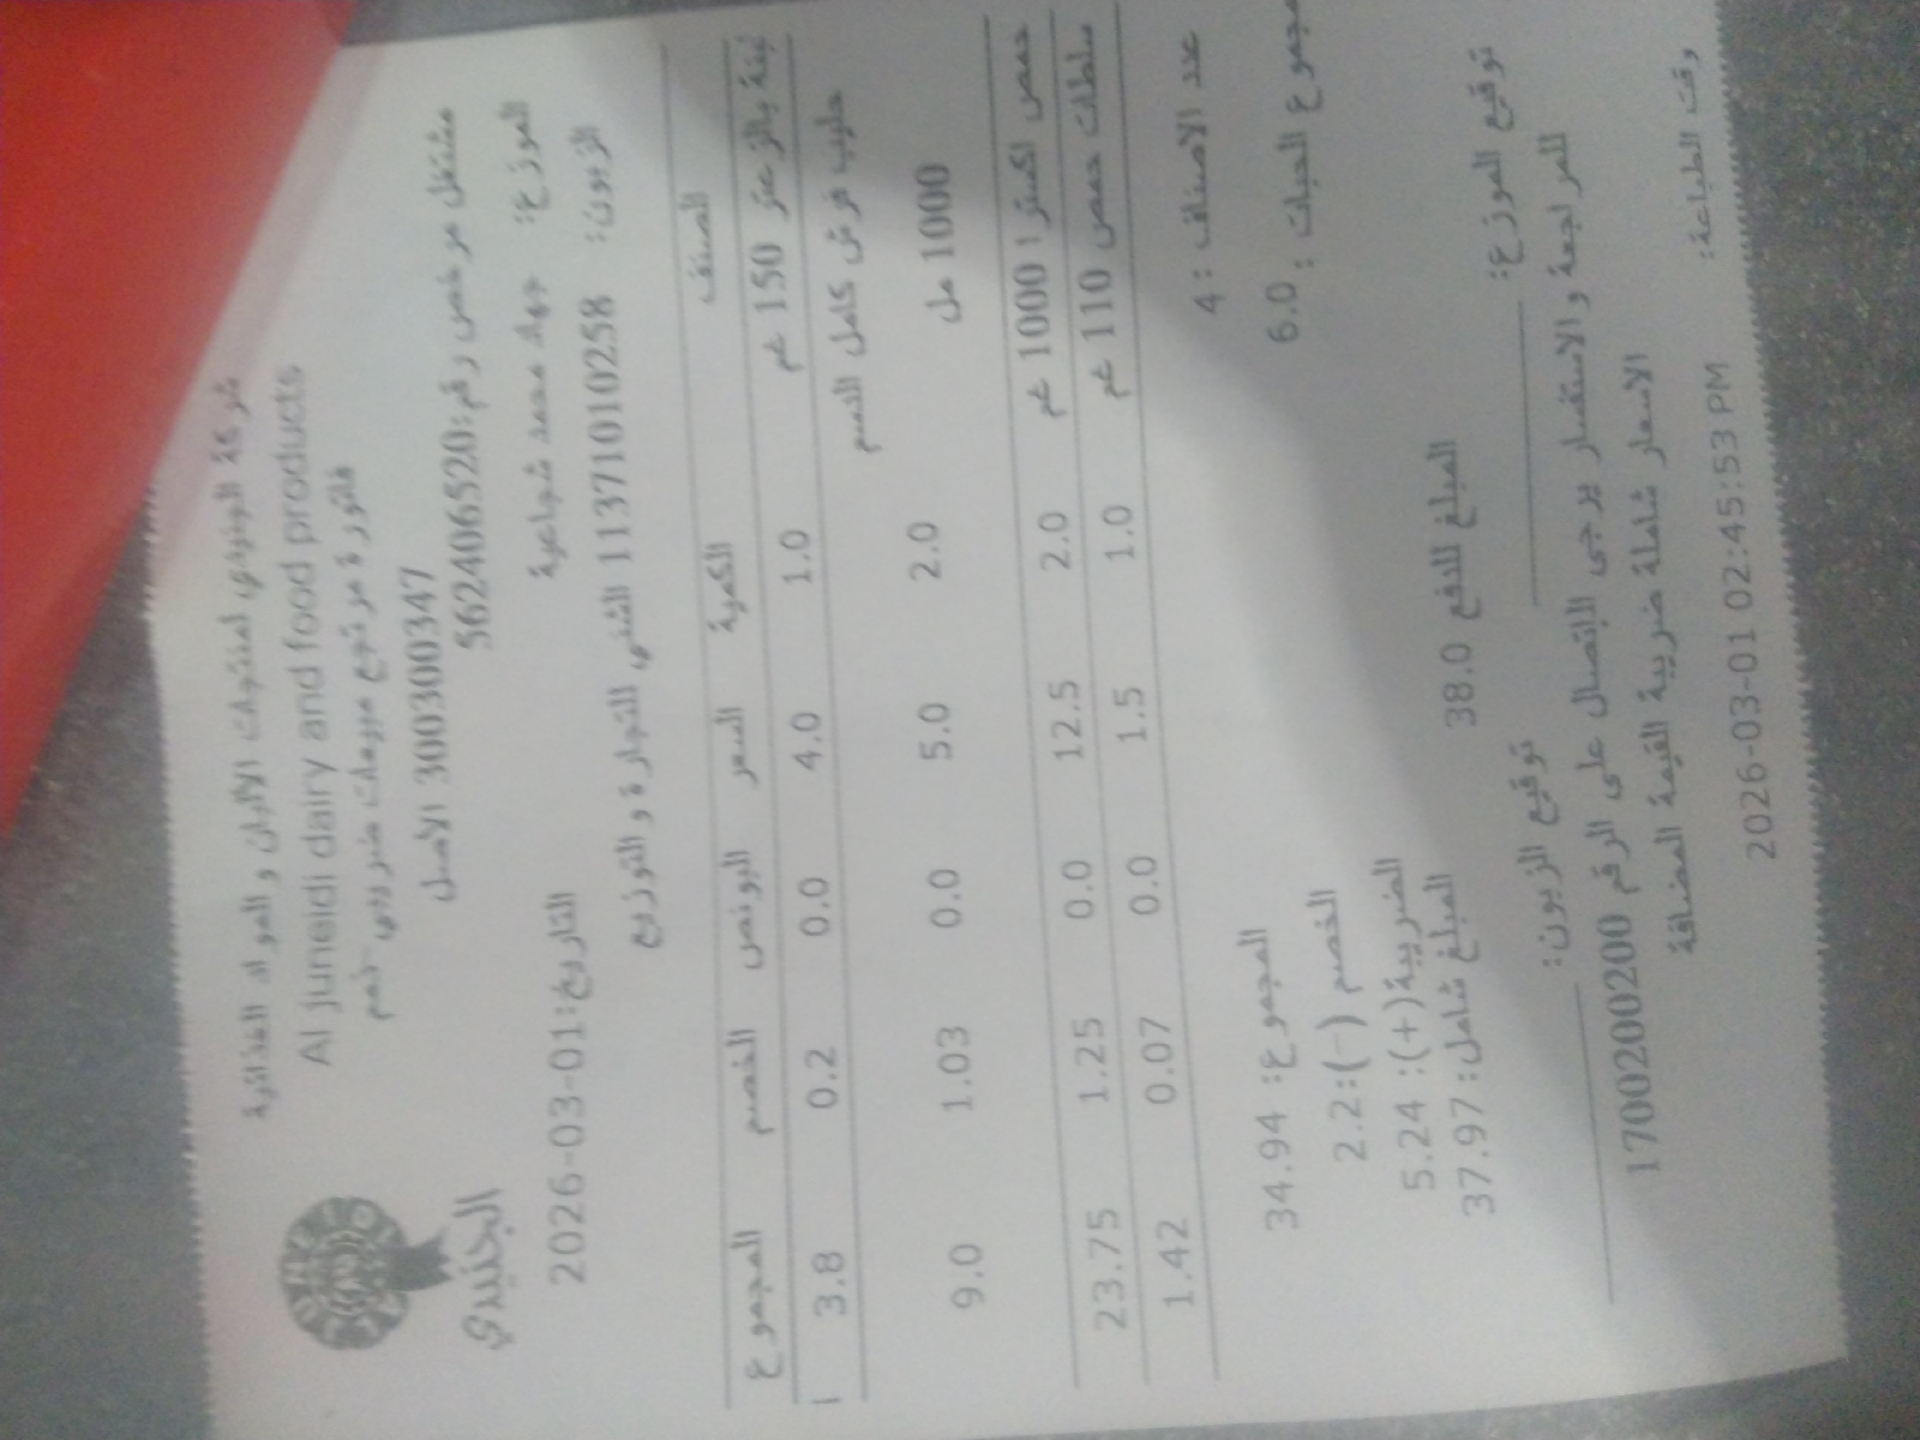 شركة الجنيدي لمنتجات الالبان و المواد الغذائية
Al juneidi dairy and food products
فاتورة مرتجع مبيعات ضريبي خصم
300300347 الأصل
مشتغل مرخص رقم:562406520
الجنيدي
الموزع: جهاد محمد شجاعية
التاريخ:2026-03-01
الزبون: 1137101010258 الشني للتجارة و التوزيع
الصنف الكمية السعر البونص الخصم المجموع
لبنة بالزعتر 150 غم 1.0 4.0 0.0 0.2 3.8
حليب فرش كامل الدسم 1000 مل 2.0 5.0 0.0 1.03 9.0
حمص اكسترا 1000 غم 2.0 12.5 0.0 1.25 23.75
سلطات حمص 110 غم 1.0 1.5 0.0 0.07 1.42
عدد الاصناف : 4
المجموع: 34.94
مجموع الحبات : 6.0
الخصم (-):2.2
الضريبة(+): 5.24
المبلغ شامل: 37.97
المبلغ للدفع 38.0
توقيع الموزع:
توقيع الزبون:
للمراجعة و الاستفسار يرجى الاتصال على الرقم 1700200200
الاسعار شاملة ضريبة القيمة المضافة
وقت الطباعة:
2026-03-01 02:45:53 PM